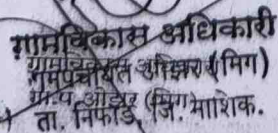 ग्रामविकास अधिकारी
ग्रामपंचायत ओझर (मिग)
ता. निफाड, जि. नाशिक.